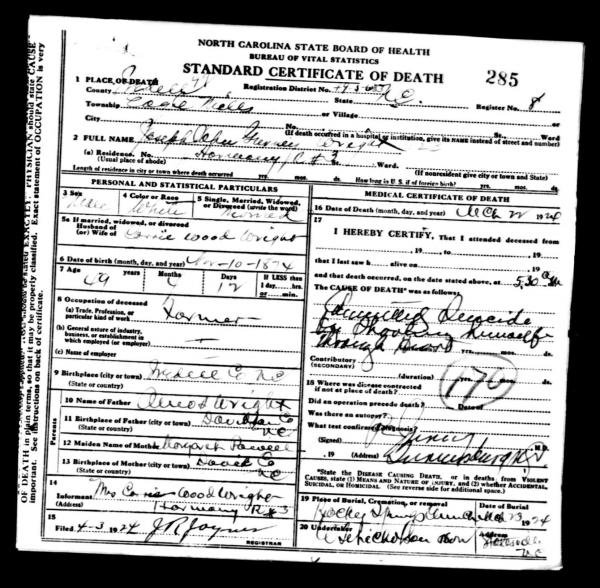 NORTH CAROLINA STATE BOARD OF HEALTH
BUREAU OF VITAL STATISTICS
STANDARD CERTIFICATE OF DEATH 285
1 PLACE OF DEATH
County Iredell Registration District No. State N.C. Register No. 8
Township Eagle Mills or Village
City No. St. Ward
(If death occurred in a hospital or institution, give its NAME instead of street and number)
2 FULL NAME Joseph Wright
(a) Residence. No. Harmony R #3 St. Ward.
(Usual place of abode) (If nonresident give city or town and State)
Length of residence in city or town where death occurred yrs. mos. ds. How long in U. S. if of foreign birth? yrs. mos. ds.
PERSONAL AND STATISTICAL PARTICULARS
3 Sex Male
4 Color or Race White
5 Single, Married, Widowed, or Divorced (write the word) Married
5a If married, widowed, or divorced
Husband of
(or) Wife of Wood Wright
6 Date of birth (month, day, and year) Nov-10-1874
7 Age 49 years Months 4 Days 12 If LESS than
1 day, hrs.
or min.
8 Occupation of deceased
(a) Trade, Profession, or
particular kind of work Farmer
(b) General nature of industry,
business, or establishment in
which employed (or employer)
(c) Name of employer
9 Birthplace (city or town) Iredell Co NC
(State or country)
Parents
10 Name of Father Wright
11 Birthplace of Father (city or town) Co
(State or country) NC
12 Maiden Name of Mother Margaret
13 Birthplace of Mother (city or town) Co
(State or country) NC
14
Informant Mrs Wood Wright
Harmony R #3
15
Filed 4-3 1924 J.R. Joyner
REGISTRAR
MEDICAL CERTIFICATE OF DEATH
16 Date of Death (month, day, and year) Mch 22 1924
17
I HEREBY CERTIFY, That I attended deceased from
, 19 , to , 19
that I last saw h alive on , 19
and that death occurred, on the date stated above, at 5,30 a m.
The CAUSE OF DEATH* was as follows:
Committed Suicide
by Shooting himself
through heart
yrs. mos. ds.
Contributory
(SECONDARY)
(duration) yrs. mos. ds.
18 Where was disease contracted
if not at place of death?
Did an operation precede death? Date of
Was there an autopsy?
What test confirmed diagnosis?
(Signed) M.D.
, 19 (Address)
*State the DISEASE CAUSING DEATH, or in deaths from VIOLENT
CAUSES, state (1) MEANS and NATURE of INJURY, and (2) whether ACCIDENTAL,
SUICIDAL, or HOMICIDAL. (See reverse side for additional space.)
19 Place of Burial, Cremation, or removal Date of Burial
Church Mch 23 1924
20 Undertaker Address
Nicholson Son
N.C.